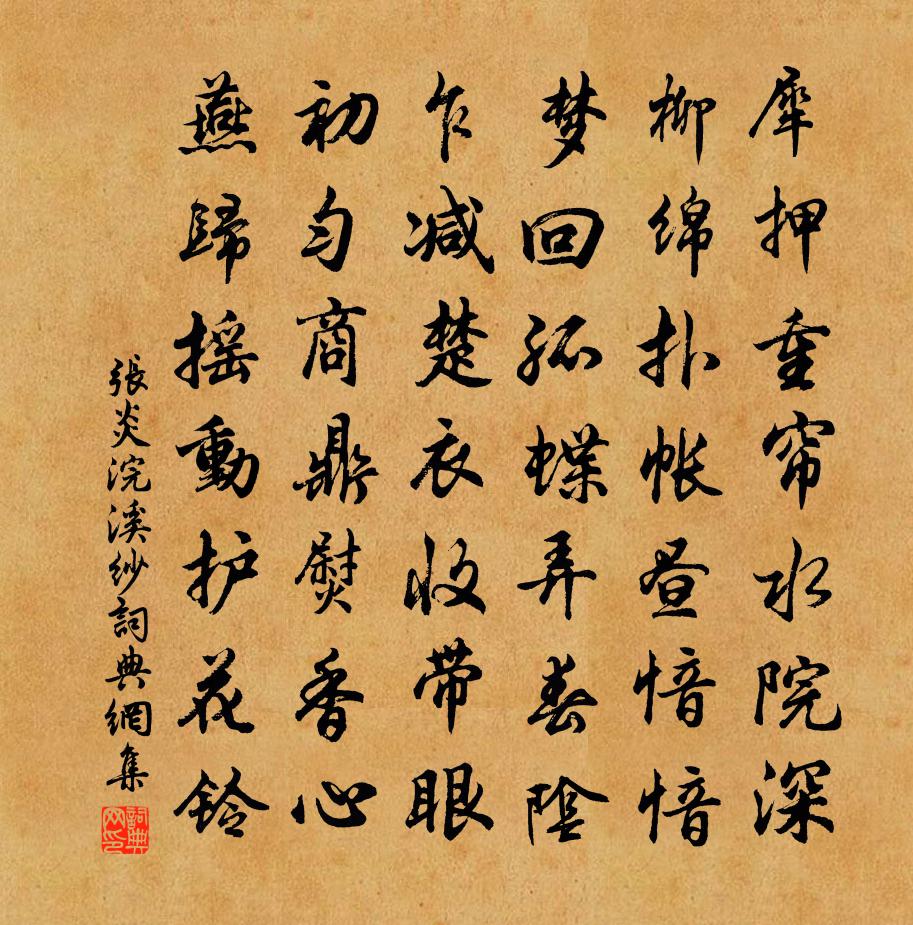 犀押重帘水院深
柳绵扑帐昼愔愔
梦回孤蝶弄春陰
乍减楚衣收带眼
初匀商鼎熨香心
燕歸摇動护花铃
張炎浣溪紗詞典網集
詞典
网印